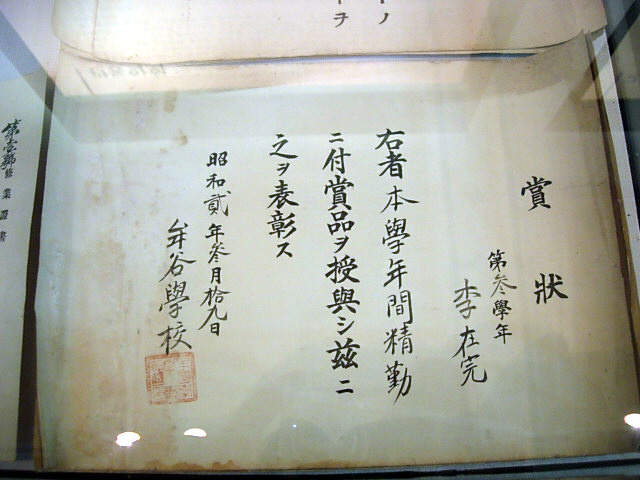 賞狀
第叄學年
李在完
右者本學年間精勤
ニ付賞品ヲ授與シ茲ニ
之ヲ表彰ス
昭和貳年叄月拾九日
牟谷學校
第壹號
修業證書